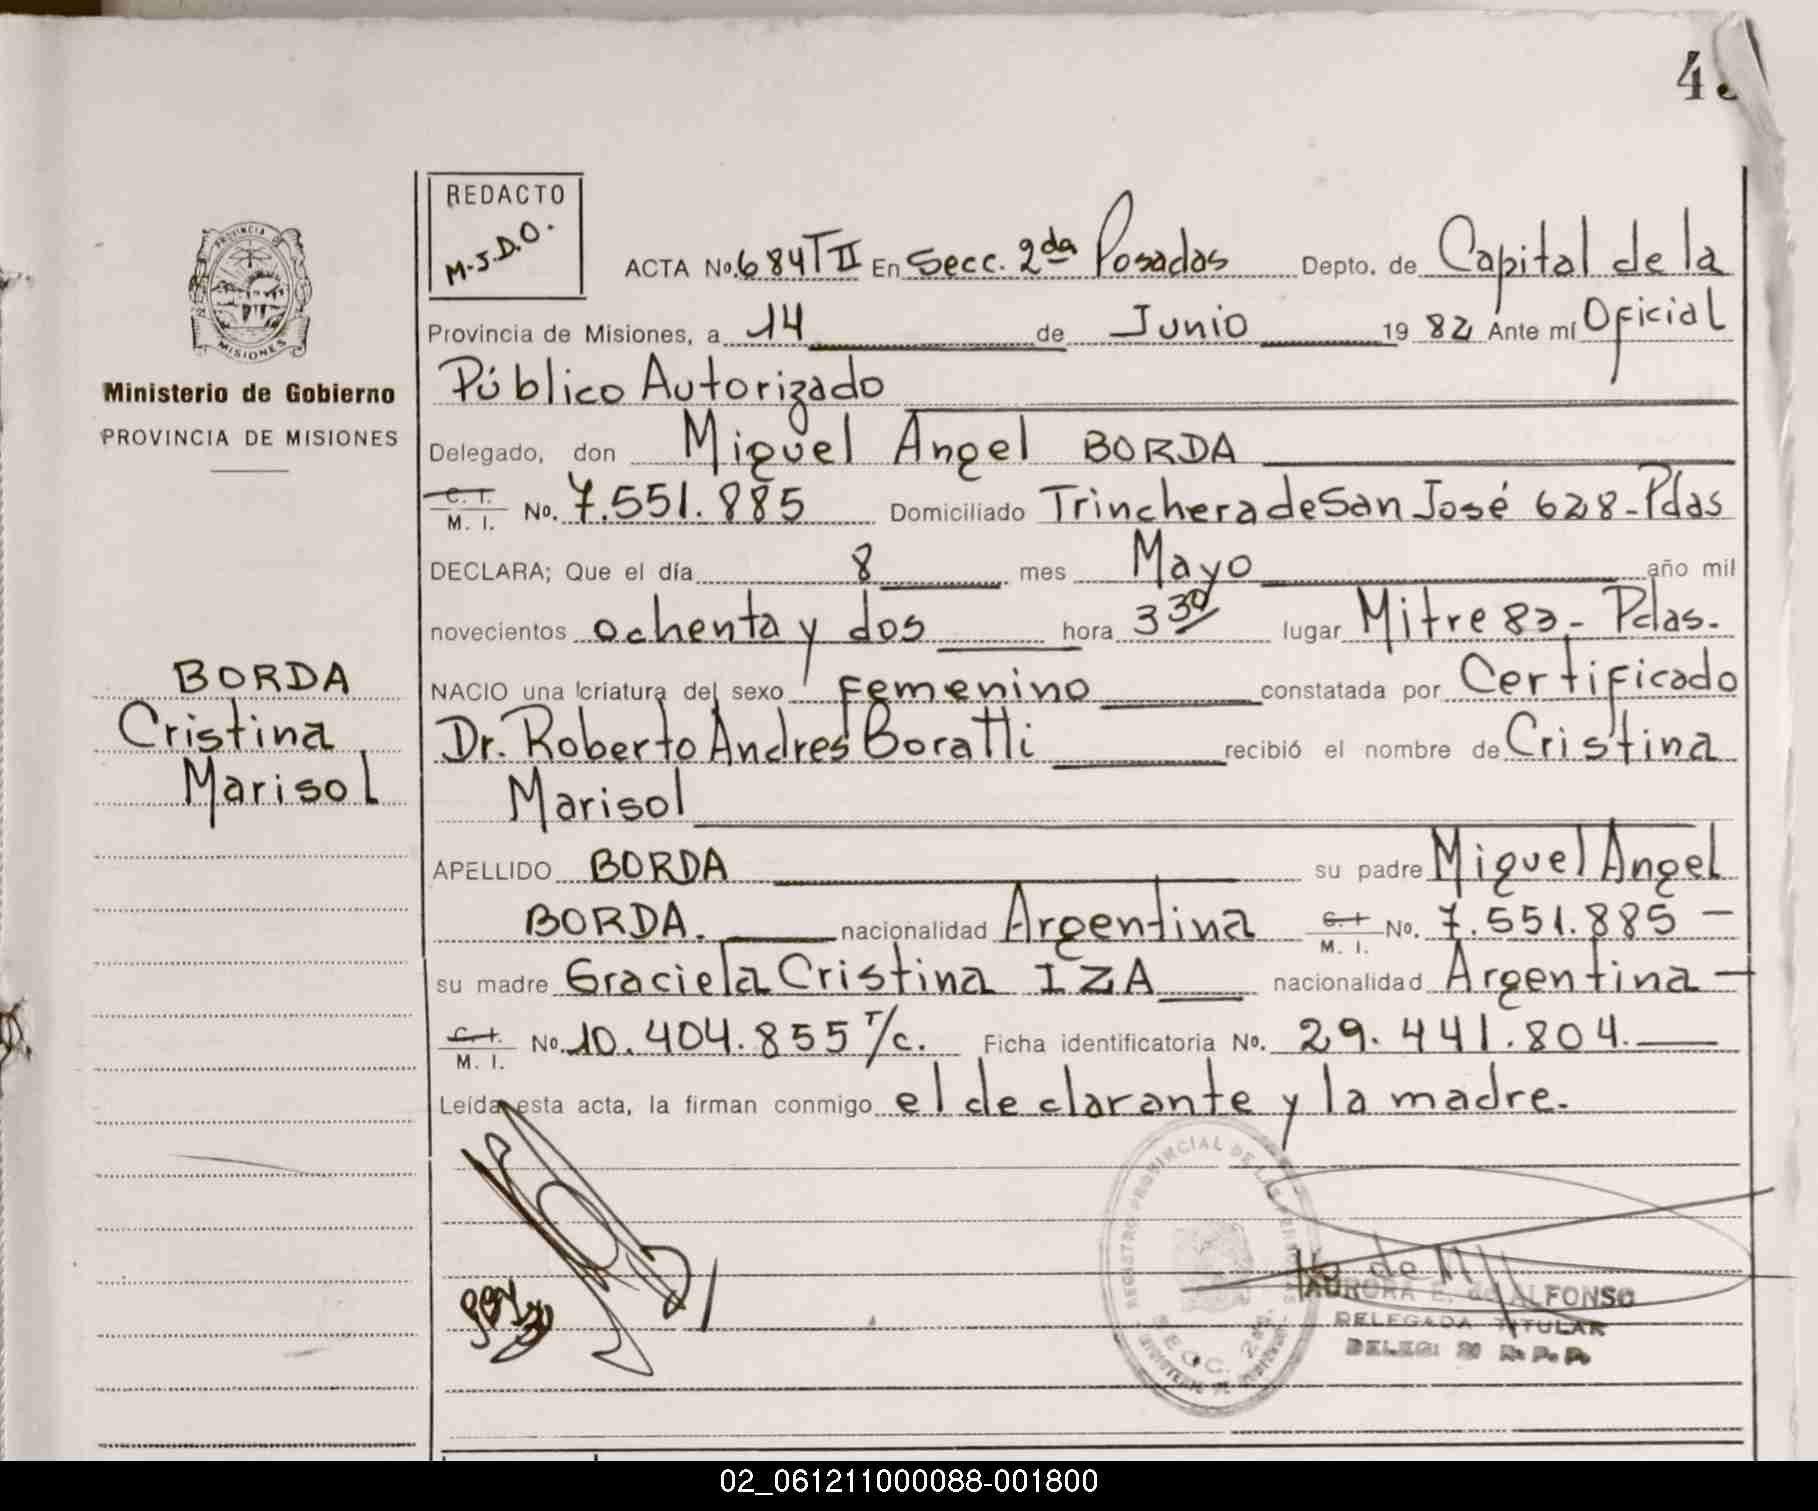 REDACTO
M.J.D.O.
PROVINCIA DE
MISIONES
Ministerio de Gobierno
PROVINCIA DE MISIONES
BORDA
Cristina
Marisol
ACTA No. 684 T II En Secc. 2da Posadas Depto. de Capital de la
Provincia de Misiones, a 14 de Junio 19 82 Ante mí Oficial
Público Autorizado
Delegado, don Miguel Angel BORDA
C. I.
M. I. No. 7.551.885 Domiciliado Trinchera de San José 628-Pdas
DECLARA; Que el día 8 mes Mayo año mil
novecientos ochenta y dos hora 3 30 lugar Mitre 83 - Pdas.
NACIO una criatura del sexo Femenino constatada por Certificado
Dr. Roberto Andres Boratti recibió el nombre de Cristina
Marisol
APELLIDO BORDA su padre Miguel Angel
BORDA. nacionalidad Argentina C. I.
M. I. No. 7.551.885 -
su madre Graciela Cristina IZA nacionalidad Argentina -
C. I.
M. I. No. 10.404.855 T/c. Ficha identificatoria No. 29.441.804.
Leída esta acta, la firman conmigo el declarante y la madre.
REGISTRO PROVINCIAL DE LAS
SECC. 2da.
AURORA E. de ALFONSO
DELEGADA TITULAR
02_061211000088-001800